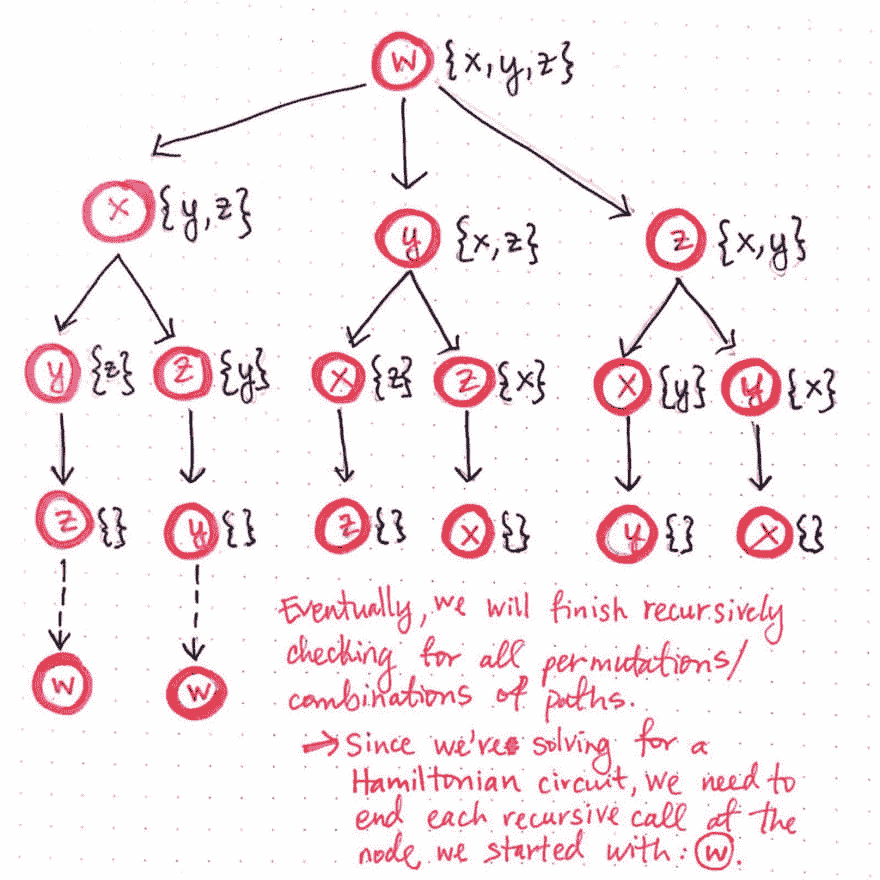 w {x,y,z}
x {y,z}
y {x,z}
z {x,y}
y {z} z {y} x {z} z {x} x {y} y {x}
z {} y {} z {} x {} y {} x {}
w w
Eventually, we will finish recursively
checking for all permutations/
combinations of paths.
→ Since we're solving for a
Hamiltonian circuit, we need to
end each recursive call at the
node we started with: w.